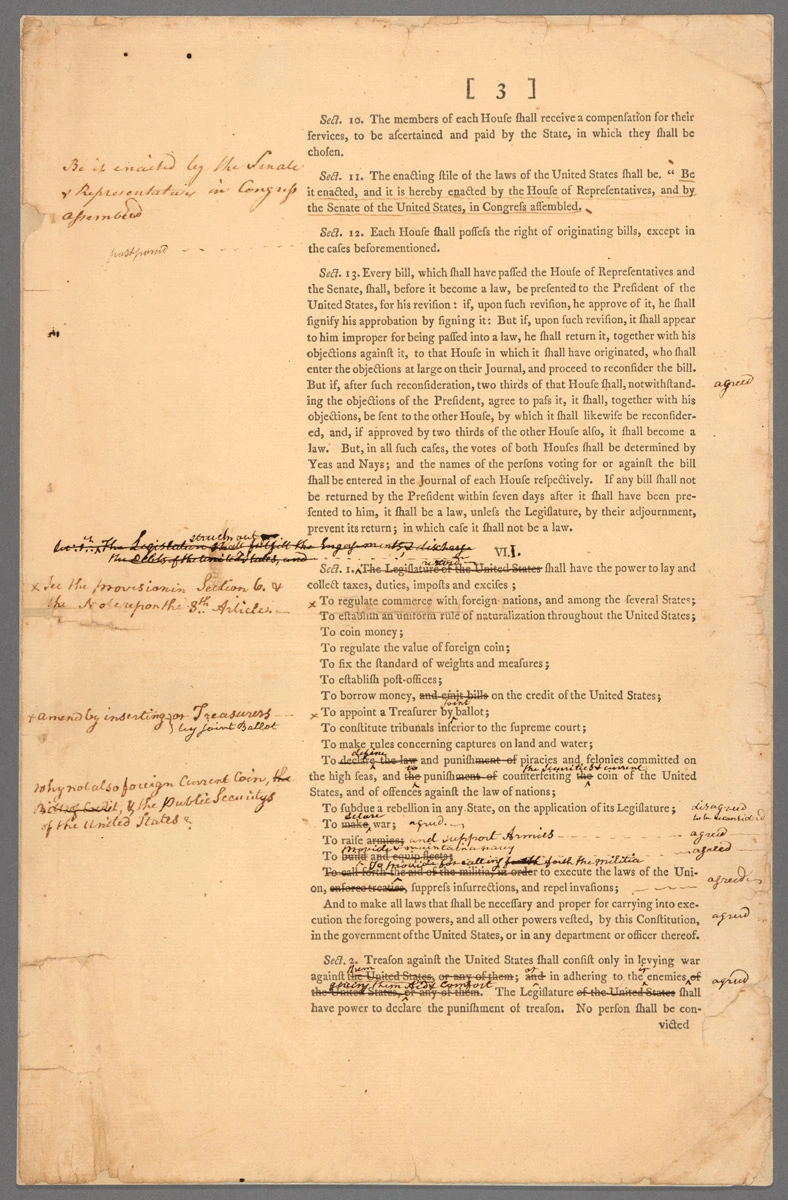 [ 3 ]
Sect. 10. The members of each Houſe ſhall receive a compenſation for their
ſervices, to be aſcertained and paid by the State, in which they ſhall be
choſen.
Be it enacted by the Senate
& Representatives in Congreſs
aſsembled
Sect. 11. The enacting ſtile of the laws of the United States ſhall be. “ Be
it enacted, and it is hereby enacted by the Houſe of Repreſentatives, and by
the Senate of the United States, in Congreſs aſſembled.
postponed
Sect. 12. Each Houſe ſhall poſſeſs the right of originating bills, except in
the caſes beforementioned.
Sect. 13. Every bill, which ſhall have paſſed the Houſe of Repreſentatives and
the Senate, ſhall, before it become a law, be preſented to the Preſident of the
United States, for his reviſion : if, upon ſuch reviſion, he approve of it, he ſhall
ſignify his approbation by ſigning it : But if, upon ſuch reviſion, it ſhall appear
to him improper for being paſſed into a law, he ſhall return it, together with his
objections againſt it, to that Houſe in which it ſhall have originated, who ſhall
enter the objections at large on their Journal, and proceed to reconſider the bill.
But if, after ſuch reconſideration, two thirds of that Houſe ſhall, notwithſtand-
agreed
ing the objections of the Preſident, agree to paſs it, it ſhall, together with his
objections, be ſent to the other Houſe, by which it ſhall likewiſe be reconſider-
ed, and, if approved by two thirds of the other Houſe alſo, it ſhall become a
law. But, in all ſuch caſes, the votes of both Houſes ſhall be determined by
Yeas and Nays ; and the names of the perſons voting for or againſt the bill
ſhall be entered in the Journal of each Houſe reſpectively. If any bill ſhall not
be returned by the Preſident within ſeven days after it ſhall have been pre-
ſented to him, it ſhall be a law, unleſs the Legiſlature, by their adjournment,
prevent its return ; in which caſe it ſhall not be a law.
struck out
The Legislature shall fulfill the Engagements & discharge
the Debts of the United States, and
VII.
Sect. 1. The Legiſlature of the United States ſhall have the power to lay and
collect taxes, duties, impoſts and exciſes ;
x See the provision in Section 6. &
the Note upon the 8th. Article.
x To regulate commerce with foreign nations, and among the ſeveral States ;
To eſtabliſh an uniform rule of naturalization throughout the United States ;
To coin money ;
To regulate the value of foreign coin ;
To fix the ſtandard of weights and meaſures ;
To eſtabliſh poſt-offices ;
To borrow money, and emit bills on the credit of the United States ;
x amend by inserting or Treasurers
by joint Ballot
joint
x To appoint a Treaſurer by ballot ;
To conſtitute tribunals inferior to the ſupreme court ;
To make rules concerning captures on land and water ;
define
To declare the law and puniſhment of piracies and felonies committed on
to
the securities & current
the high ſeas, and the puniſhment of counterfeiting the coin of the United
States, and of offences againſt the law of nations ;
why not also foreign Current Coin, the
Bills of Credit, & the public Securitys
of the United States &
To ſubdue a rebellion in any State, on the application of its Legiſlature ;
disagreed
declare
To make war ; agreed
To raiſe armies ; and support Armies
agreed
provide & maintain a navy
To build and equip fleets ;
agreed
To provide for calling forth the militia
To call forth the aid of the militia, in order to execute the laws of the Uni-
on, enforce treaties, ſuppreſs inſurrections, and repel invaſions ;
agreed
And to make all laws that ſhall be neceſſary and proper for carrying into exe-
cution the foregoing powers, and all other powers veſted, by this Conſtitution,
agreed
in the government of the United States, or in any department or officer thereof.
Sect. 2. Treaſon againſt the United States ſhall conſiſt only in levying war
them
or
againſt the United States, or any of them ; and in adhering to the enemies of
agreed
giving them Aid & Comfort
the United States, or any of them. The Legiſlature of the United States ſhall
have power to declare the puniſhment of treaſon. No perſon ſhall be con-
victed